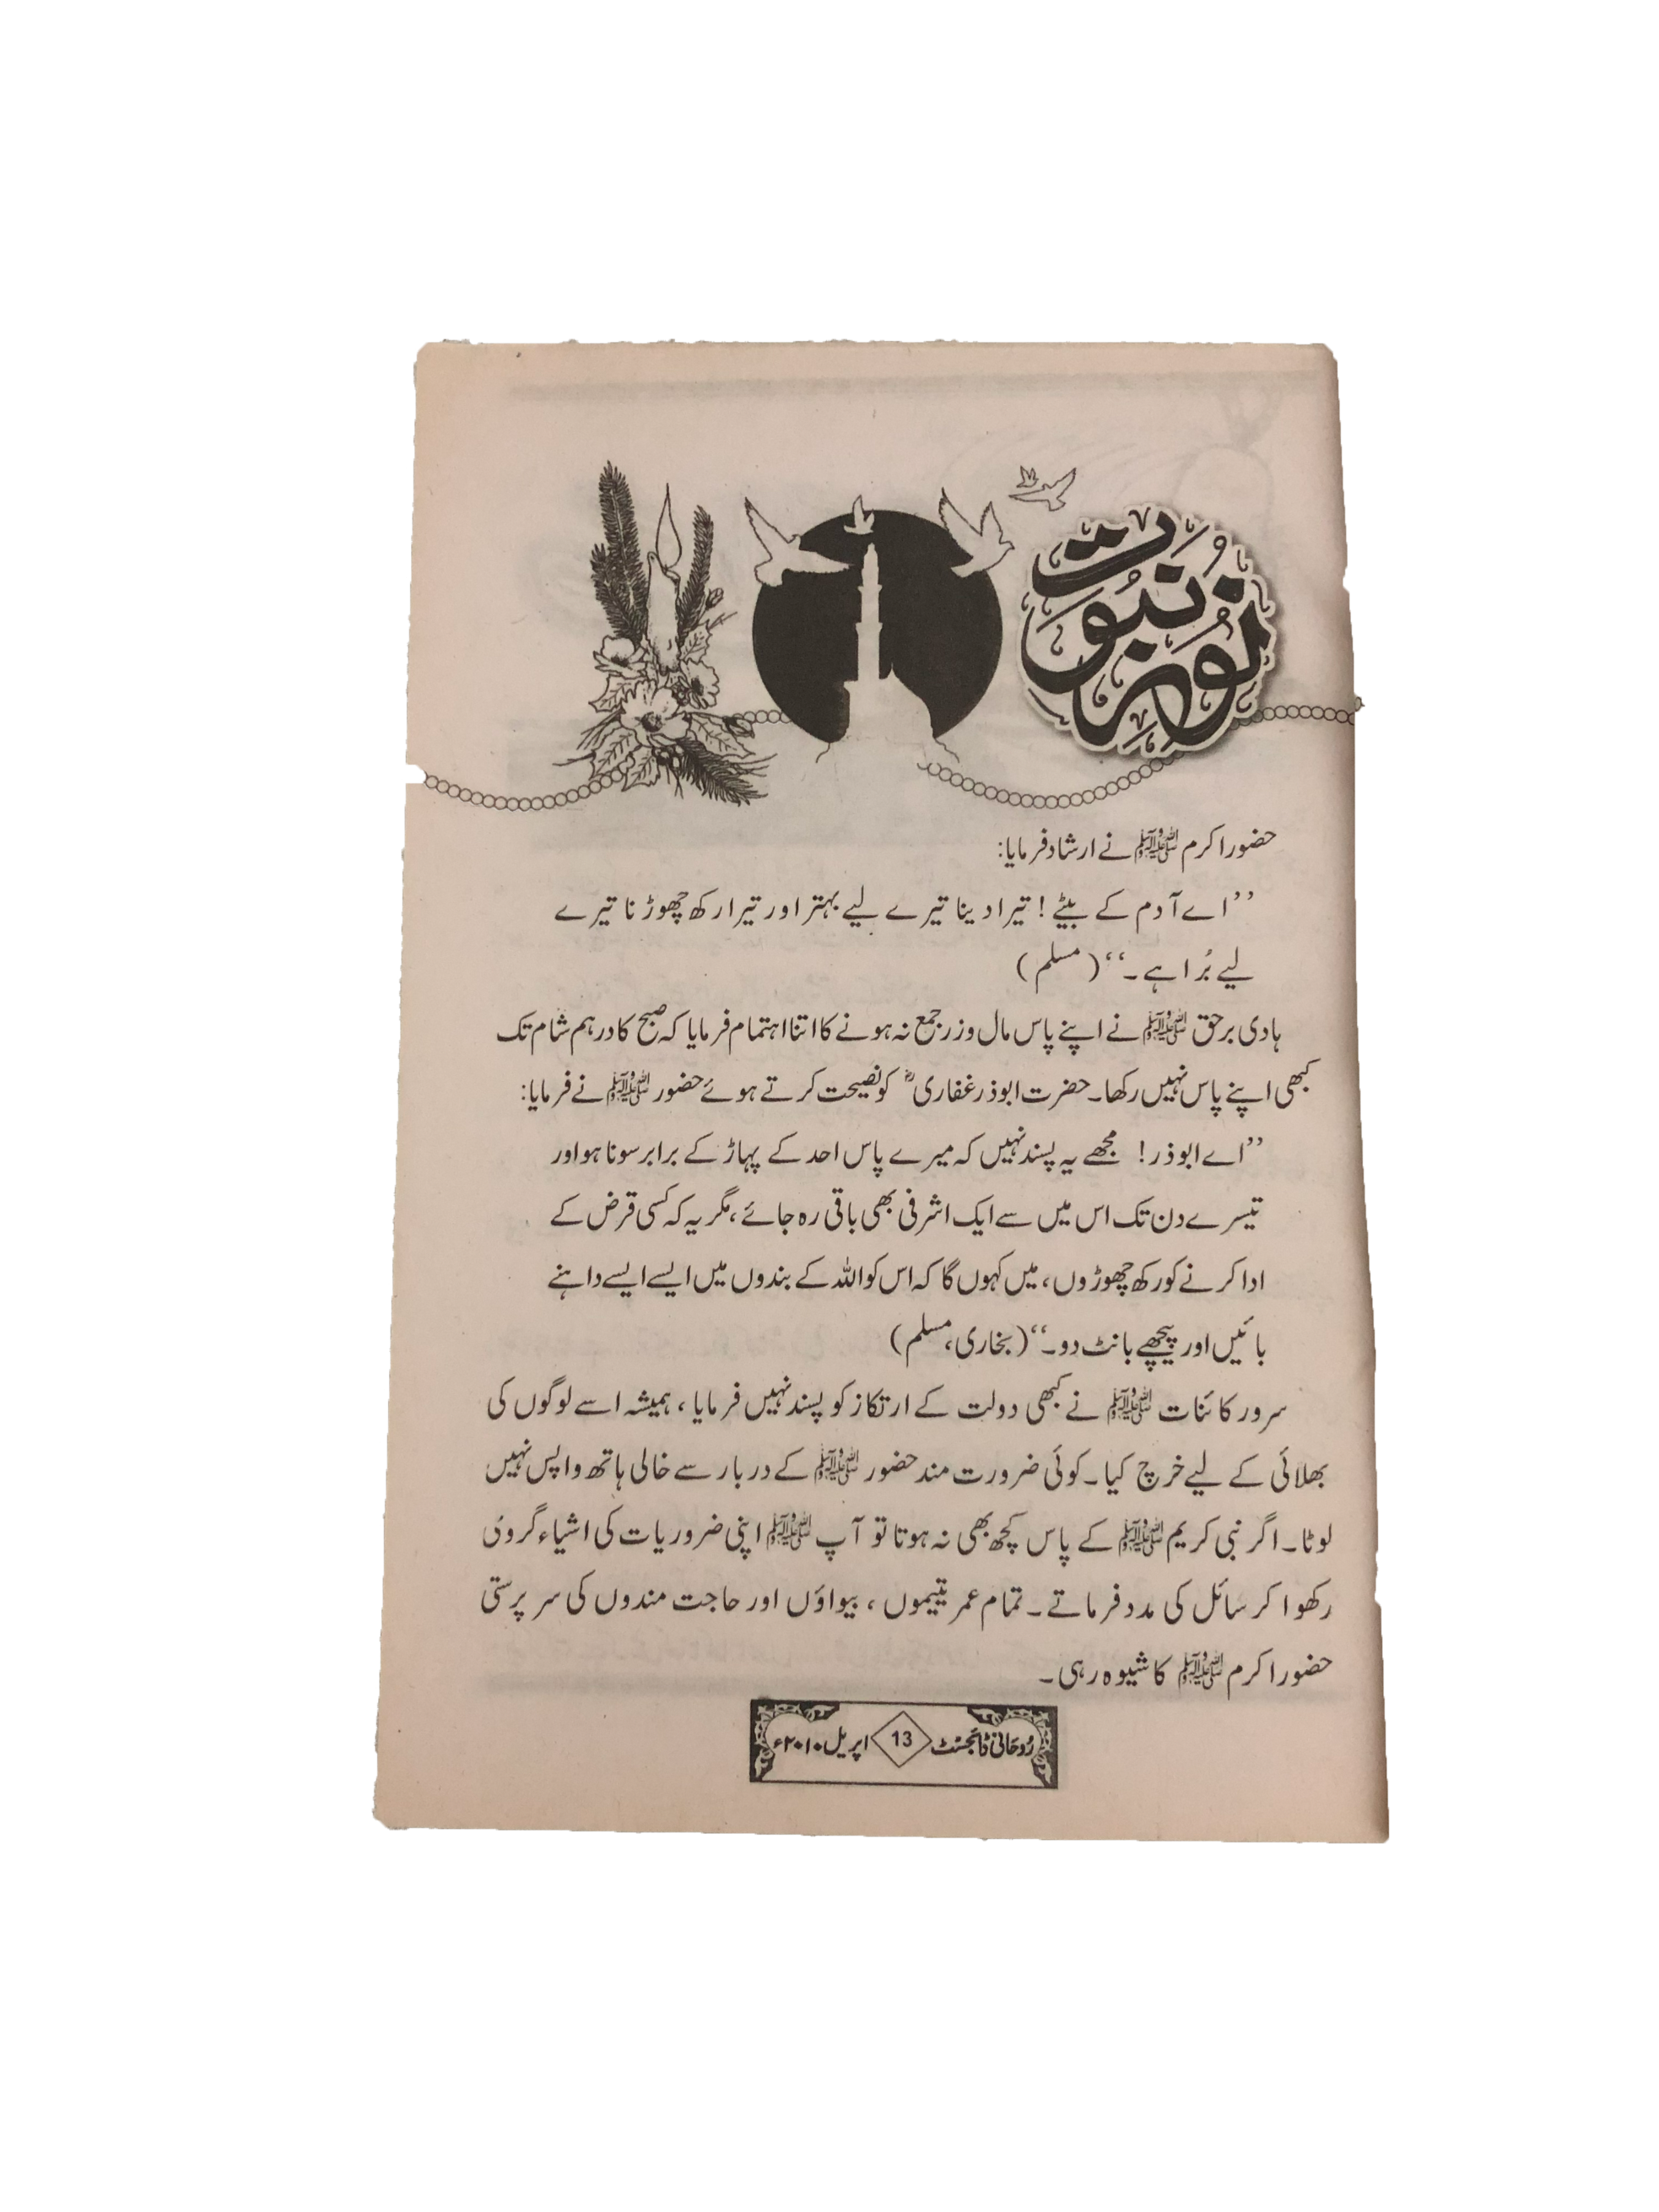 نورِ نبوت
حضور اکرم ﷺ نے ارشاد فرمایا:
’’اے آدم کے بیٹے! تیرا دینا تیرے لیے بہتر اور تیرا رکھ چھوڑنا تیرے
لیے بُرا ہے۔‘‘ (مسلم)
ہادی برحق ﷺ نے اپنے پاس مال و زر جمع نہ ہونے کا اتنا اہتمام فرمایا کہ صبح کا درہم شام تک
کبھی اپنے پاس نہیں رکھا۔ حضرت ابوذر غفاریؓ کو نصیحت کرتے ہوئے حضور ﷺ نے فرمایا:
’’اے ابوذر! مجھے یہ پسند نہیں کہ میرے پاس احد کے پہاڑ کے برابر سونا ہو اور
تیسرے دن تک اس میں سے ایک اشرفی بھی باقی رہ جائے، مگر یہ کہ کسی قرض کے
ادا کرنے کو رکھ چھوڑوں، میں کہوں گا کہ اس کو اللہ کے بندوں میں ایسے ایسے داہنے
بائیں اور پیچھے بانٹ دو۔‘‘ (بخاری، مسلم)
سرور کائنات ﷺ نے کبھی دولت کے ارتکاز کو پسند نہیں فرمایا، ہمیشہ اسے لوگوں کی
بھلائی کے لیے خرچ کیا۔ کوئی ضرورت مند حضور ﷺ کے دربار سے خالی ہاتھ واپس نہیں
لوٹا۔ اگر نبی کریم ﷺ کے پاس کچھ بھی نہ ہوتا تو آپ ﷺ اپنی ضروریات کی اشیاء گروی
رکھوا کر سائل کی مدد فرماتے۔ تمام عمر یتیموں، بیواؤں اور حاجت مندوں کی سرپرستی
حضور اکرم ﷺ کا شیوہ رہی۔
رُوحانی ڈائجسٹ 13 اپریل ۲۰۱۰ء